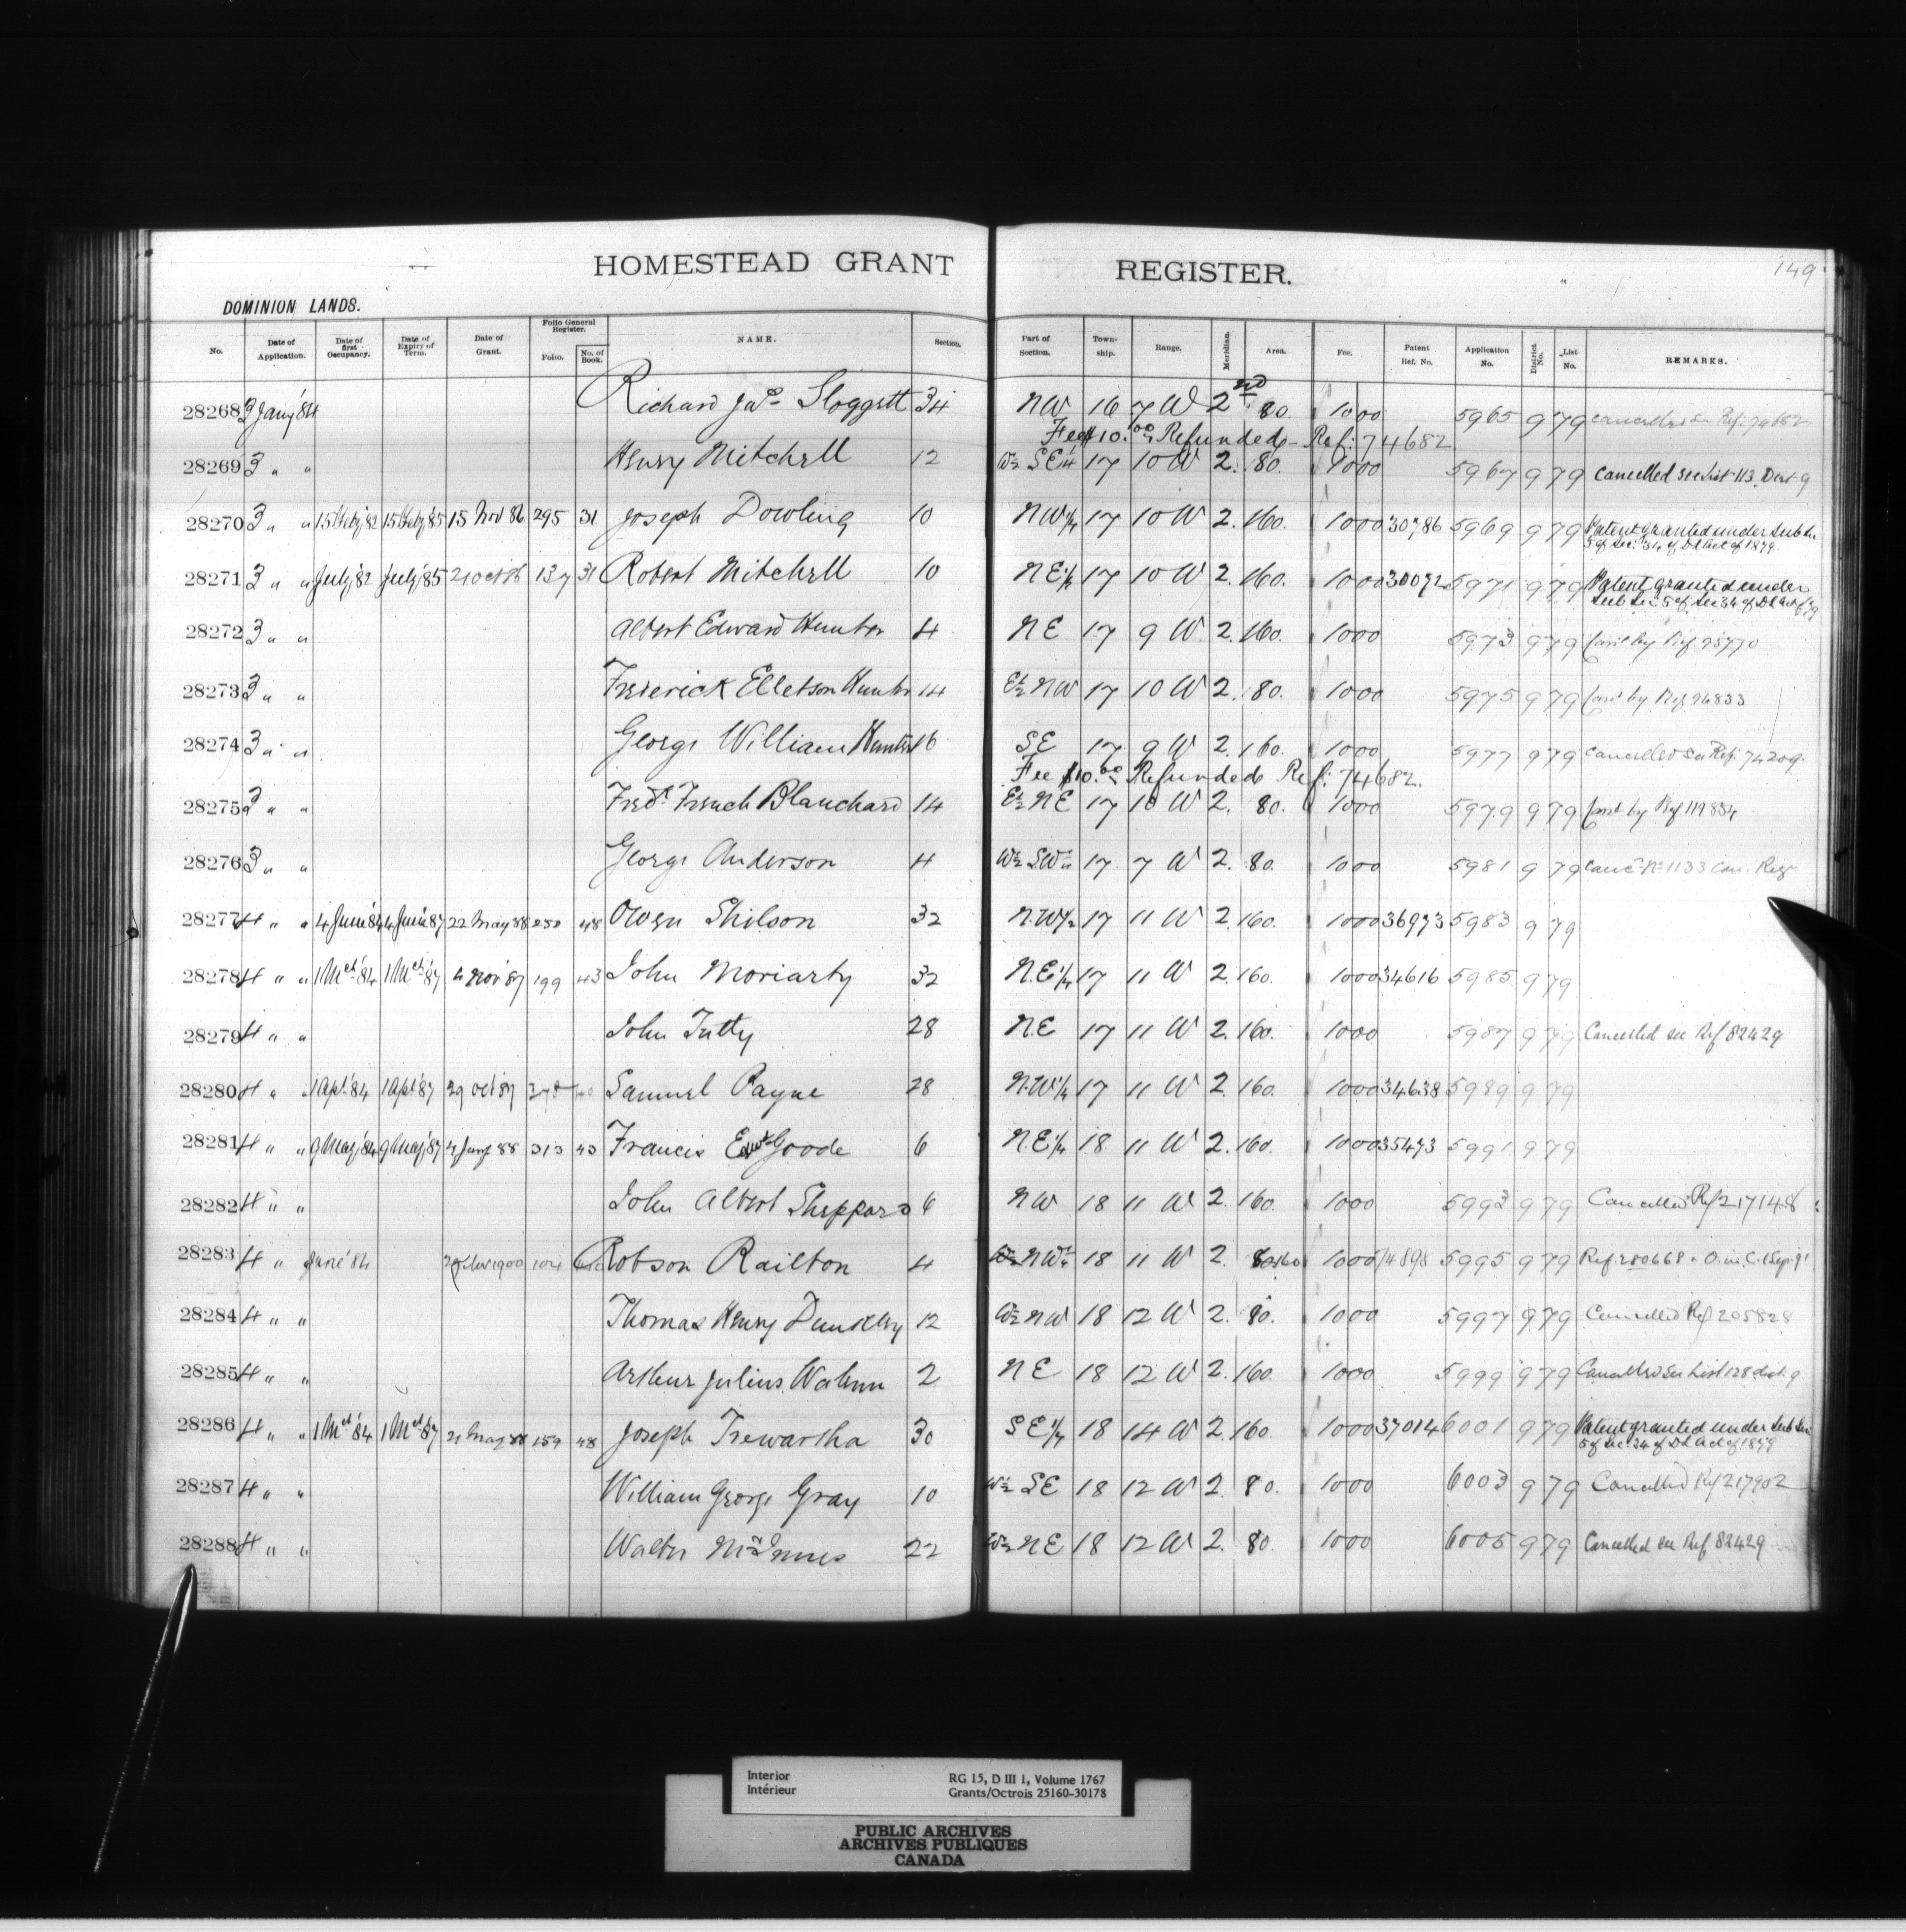 HOMESTEAD GRANT REGISTER.
149
DOMINION LANDS.
No. Date of Application. Date of first Occupancy. Date of Expiry of Term. Date of Grant. Folio General Register. Folio. No. of Book. NAME. Section. Part of Section. Township. Range. Meridian. Area. Fee. Patent Ref. No. Application No. District No. List No. REMARKS.
28268 3 Jany '84 Richard Jas Sloggett 34 NW 16 7 W 2nd 80. 1000 5965 9 79 Cancelled see Ref: 74682
Fee $10.00 Refunded - Ref: 74682
28269 3 " " Henry Mitchell 12 W½ SE¼ 17 10 W 2. 80. 1000 5967 9 79 Cancelled see List 113 Dist 9
28270 3 " " 15 Feby '82 15 Feby '85 15 Nov 86 295 31 Joseph Dowling 10 NW¼ 17 10 W 2. 160. 1000 30786 5969 9 79 Patent granted under Sub Sec
5 of Sec: 34 of D L Act of 1879.
28271 3 " " July '82 July '85 21 Oct 86 137 31 Robert Mitchell 10 NE¼ 17 10 W 2. 160. 1000 30092 5971 9 79 Patent granted under
Sub Sec 5 of Sec 34 of D L Act of '79
28272 3 " " Albert Edward Hunter 4 NE 17 9 W 2. 160. 1000 5973 9 79 Canc by Ref 95770
28273 3 " " Frederick Elletson Hunter 14 E½ NW 17 10 W 2. 80. 1000 5975 9 79 Canc by Ref 96833
28274 3 " " George William Hunter 16 SE 17 9 W 2. 160. 1000 5977 9 79 Cancelled see Ref: 74209
Fee $10.00 Refunded Ref: 74682.
28275 3 " " Fredk French Blanchard 14 E½ NE 17 10 W 2. 80. 1000 5979 9 79 Canc by Ref 119854
28276 3 " " George Anderson 4 W½ SW¼ 17 7 W 2. 80. 1000 5981 9 79 Canc No 1133 Can. Reg
28277 4 " " 4 June '84 4 June '87 22 May 88 250 48 Owen Shilson 32 N.W¼ 17 11 W 2. 160. 1000 36973 5983 9 79
28278 4 " " 1 Mch '84 1 Mch '87 4 Nov '87 199 43 John Moriarty 32 N.E¼ 17 11 W 2. 160. 1000 34616 5985 9 79
28279 4 " " John Tutty 28 N.E 17 11 W 2. 160. 1000 5987 9 79 Cancelled see Ref 82429
28280 4 " " 1 Apl '84 1 Apl '87 29 Oct 87 Samuel Payne 28 N.W¼ 17 11 W 2. 160. 1000 34638 5989 9 79
28281 4 " " 9 May '84 9 May '87 4 Jany 88 313 43 Francis Goode 6 N.E¼ 18 11 W 2. 160. 1000 35473 5991 9 79
28282 4 " " John Albert Sheppard 6 NW 18 11 W 2. 160. 1000 5993 9 79 Cancelled Ref 217148
28283 4 " " June '84 1900 104 Robson Railton 4 W½ NW¼ 18 11 W 2. 80 160 1000 74898 5995 9 79 Ref: 280668 O. in C. 1 Sep. 91
28284 4 " " Thomas Henry Dunkley 12 W½ NW 18 12 W 2. 80. 1000 5997 9 79 Cancelled Ref 205828
28285 4 " " Arthur Julius Wahnn 2 NE 18 12 W 2. 160. 1000 5999 9 79 Cancelled see List 128 dist. 9
28286 4 " " 1 Mch '84 1 Mch '87 21 May 88 159 48 Joseph Trewartha 30 SE¼ 18 14 W 2. 160. 1000 37014 6001 9 79 Patent granted under Sub Sec
5 of Sec 34 of D L Act of 1879
28287 4 " " William George Gray 10 W½ SE 18 12 W 2. 80. 1000 6003 9 79 Cancelled Ref 217902
28288 4 " " Walter McInnes 22 W½ NE 18 12 W 2. 80. 1000 6005 9 79 Cancelled see Ref 82429
Interior RG 15, D III 1, Volume 1767
Intérieur Grants/Octrois 25160-30178
PUBLIC ARCHIVES
ARCHIVES PUBLIQUES
CANADA